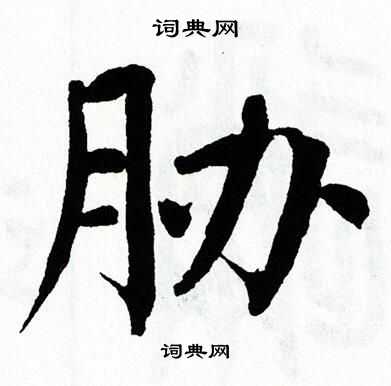 词典网
胁
词典网